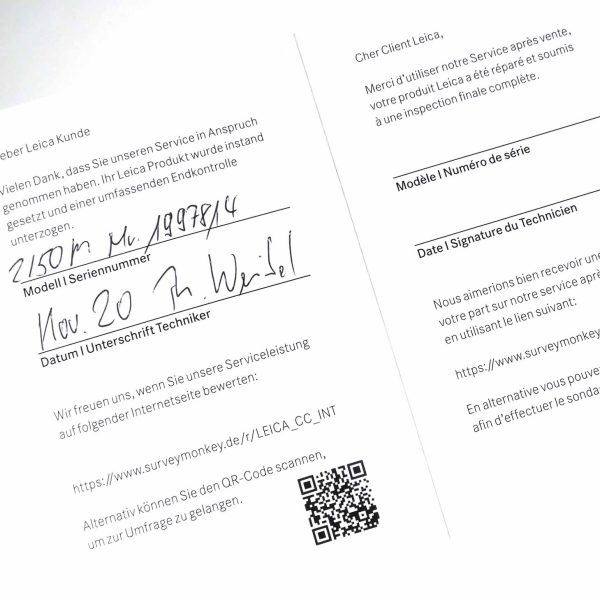 eber Leica Kunde
Vielen Dank, dass Sie unseren Service in Anspruch
genommen haben. Ihr Leica Produkt wurde instand
gesetzt und einer umfassenden Endkontrolle
unterzogen.
Nr. 1997814
Modell | Seriennummer
Nov. 20
Datum | Unterschrift Techniker
Wir freuen uns, wenn Sie unsere Serviceleistung
auf folgender Internetseite bewerten:
https://www.surveymonkey.de/r/LEICA_CC_INT
Alternativ können Sie den QR-Code scannen,
um zur Umfrage zu gelangen.
Cher Client Leica,
Merci d'utiliser notre Service après vente,
votre produit Leica a été réparé et soumis
à une inspection finale complète.
Modèle | Numéro de série
Date | Signature du Technicien
Nous aimerions bien recevoir une
votre part sur notre service aprè
en utilisant le lien suivant:
https://www.surveymonkey
En alternative vous pouve
afin d'effectuer le sonda